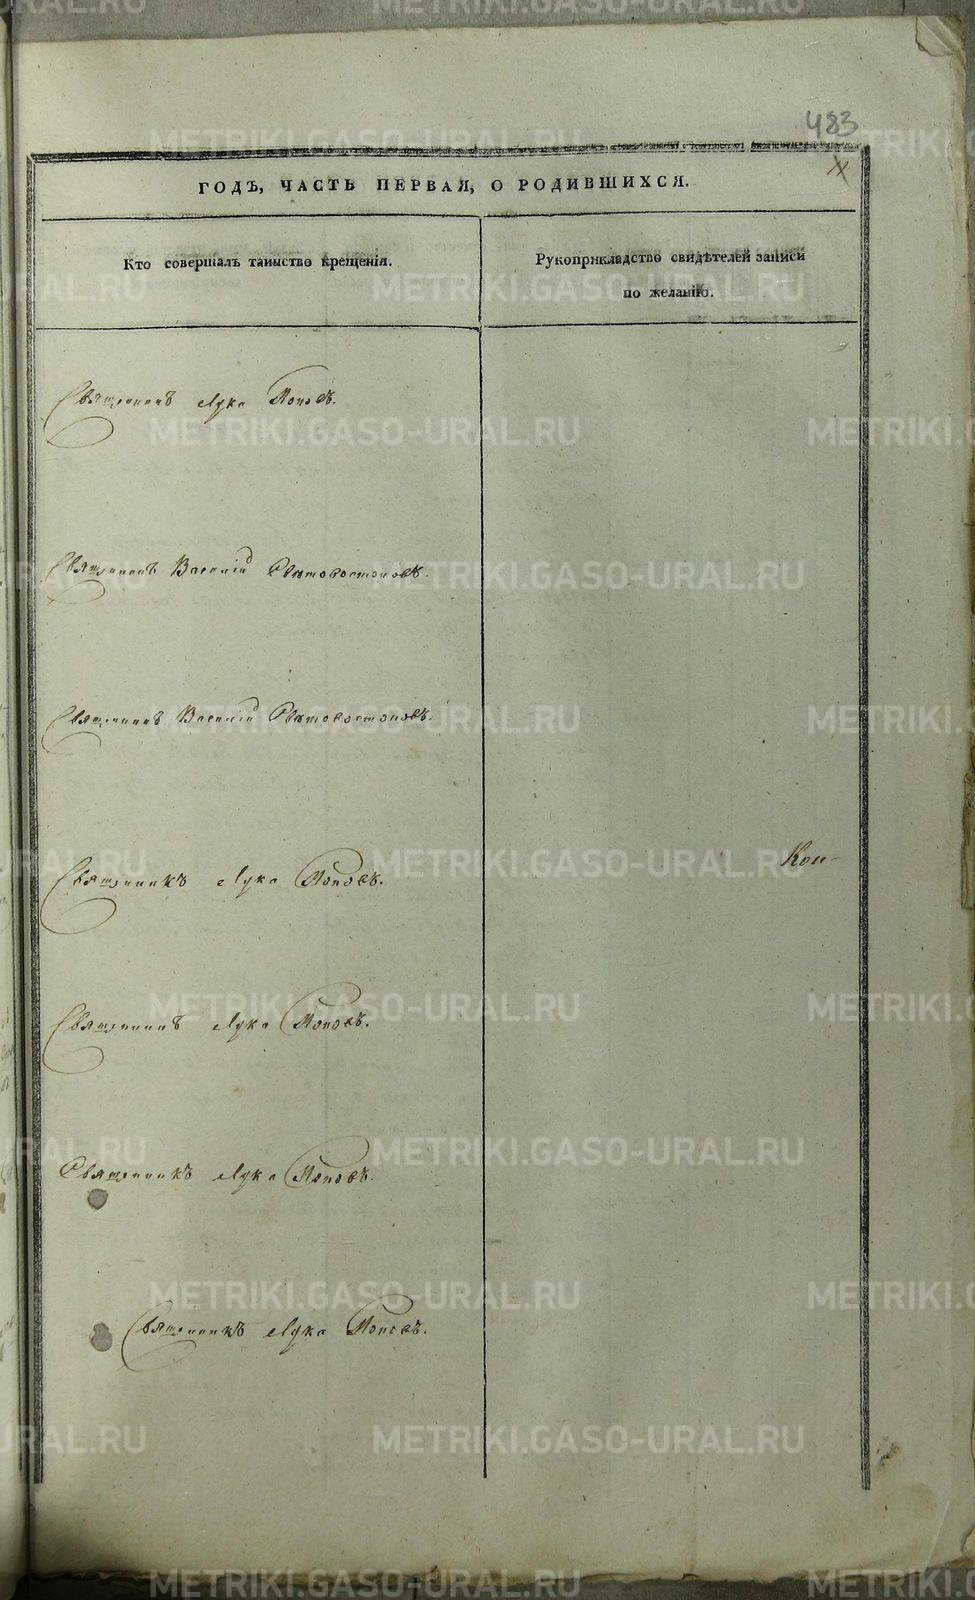 483
11
ГОДЪ, ЧАСТЬ ПЕРВАЯ, О РОДИВШИХСЯ.
Кто совершалъ таинство крещенія.
Рукоприкладство свидѣтелей записи
по желанію.
Священникъ Лука Поповъ.
Священникъ Василій Свѣтовостоковъ.
Священникъ Василій Свѣтовостоковъ.
Священникъ Лука Поповъ.
Кон-
Священникъ Лука Поповъ.
Священникъ Лука Поповъ.
Священникъ Лука Поповъ.
METRIKI.GASO-URAL.RU